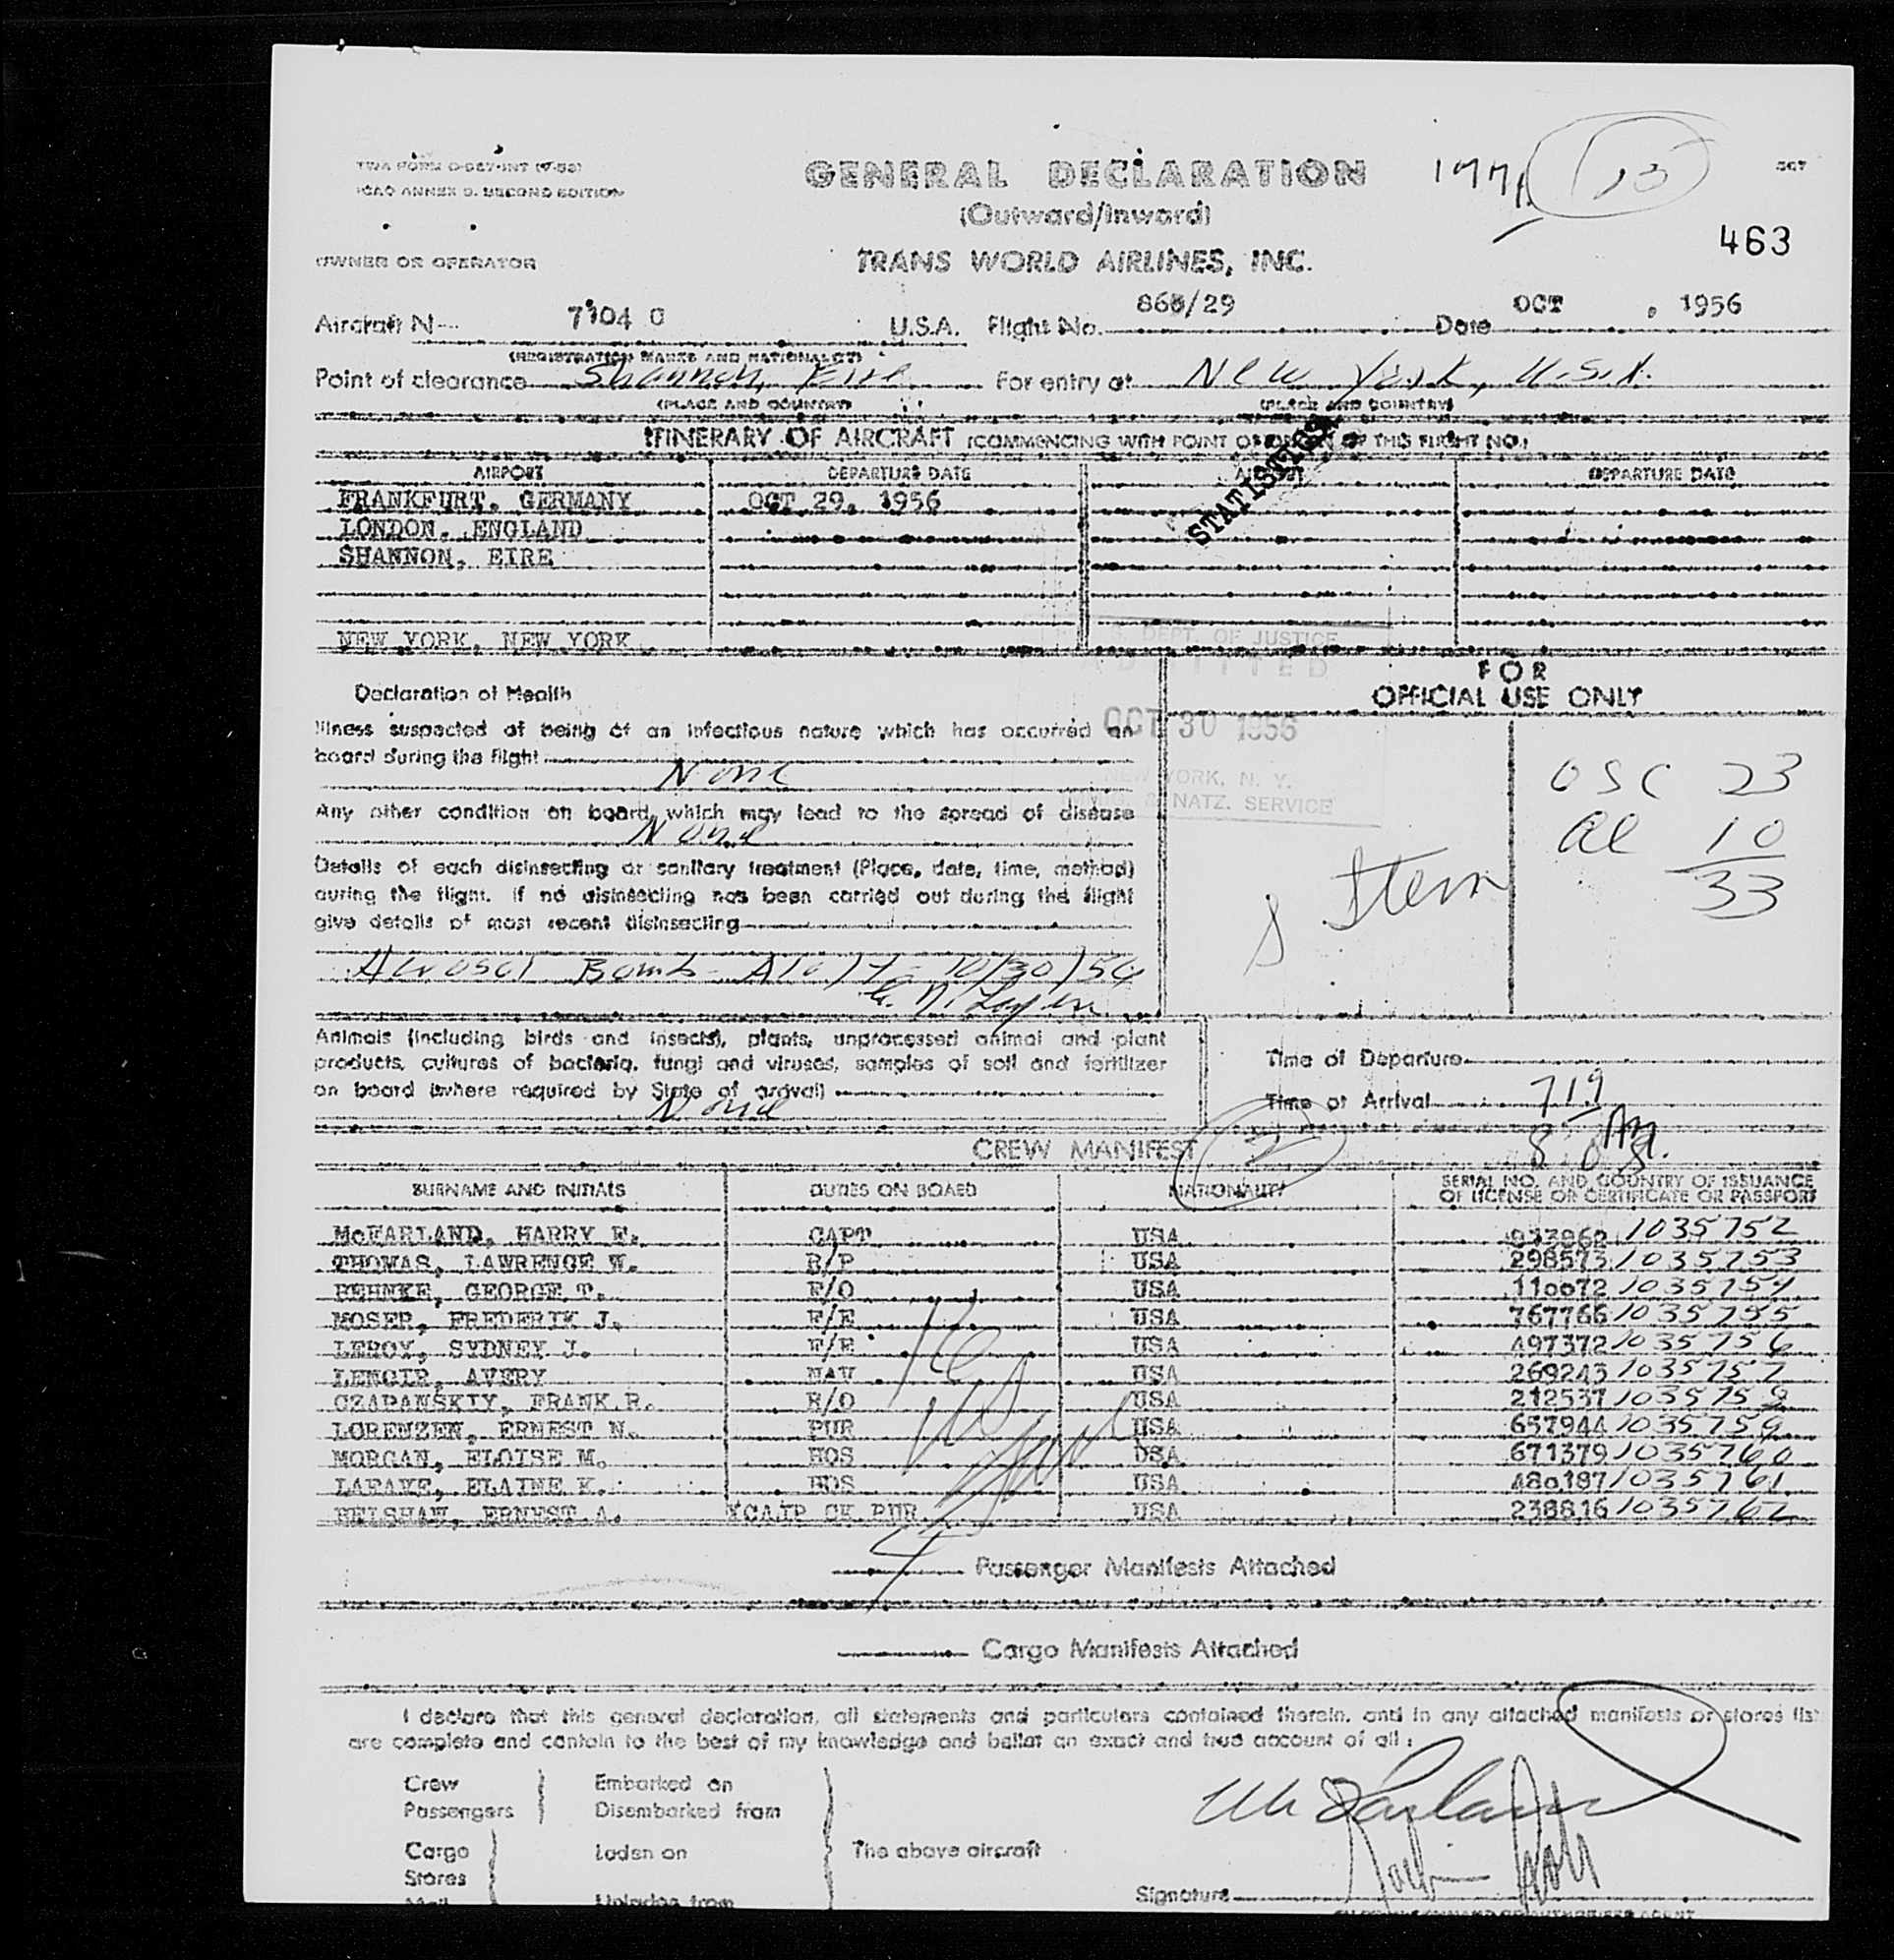 TWA FORM
ICAO ANNEX 9. SECOND EDITION
GENERAL DECLARATION
(Outward/Inward)
13
463
OWNER OR OPERATOR
TRANS WORLD AIRLINES, INC.
Aircraft N 7104 C U.S.A. Flight No. /29 Date OCT , 1956
(REGISTRATION MARKS AND NATIONALITY)
Point of clearance Shannon, Eire For entry at New York, U.S.A.
(PLACE AND COUNTRY) (PLACE AND COUNTRY)
STATISTICS
ITINERARY OF AIRCRAFT (COMMENCING WITH POINT OF ORIGIN OF THIS FLIGHT NO.)
AIRPORT DEPARTURE DATE AIRPORT DEPARTURE DATE
FRANKFURT, GERMANY OCT 29, 1956
LONDON, ENGLAND
SHANNON, EIRE
NEW YORK, NEW YORK
S. DEPT. OF JUSTICE
ADMITTED
OCT 30 1956
NEW YORK, N. Y.
IMMIG. & NATZ. SERVICE
FOR
OFFICIAL USE ONLY
OSC 23
al 10
33
S Stern
Declaration of Health
Illness suspected of being of an infectious nature which has occurred on
board during the flight
None
Any other condition on board which may lead to the spread of disease
None
Details of each disinsecting or sanitary treatment (Place, date, time, method)
during the flight. If no disinsecting has been carried out during the flight
give details of most recent disinsecting
Aerosol Bomb - Aloft - 10/30/56
Animals (including birds and insects), plants, unprocessed animal and plant
products, cultures of bacteria, fungi and viruses, samples of soil and fertilizer
on board (where required by State of arrival)
None
Time of Departure
Time of Arrival 719
CREW MANIFEST
SURNAME AND INITIALS DUTIES ON BOARD NATIONALITY SERIAL NO. AND COUNTRY OF ISSUANCE
OF LICENSE OR CERTIFICATE OR PASSPORT
McFARLAND, HARRY E. CAPT USA 1035752
THOMAS, LAWRENCE W. R/P USA 298573 1035753
BEHNKE, GEORGE T. F/O USA 110072 1035754
MOSER, FREDERIK J. F/E USA 767766 1035755
LEROY, SYDNEY J. F/E USA 497372 1035756
LENOIR, AVERY NAV USA 269243 1035757
CZAPANSKIY, FRANK R. R/O USA 212537 1035758
LORENZEN, ERNEST N. PUR USA 657944 1035759
MORGAN, ELOISE M. HOS USA 671379 1035760
LAFAVE, ELAINE K. HOS USA 480187 1035761
BELSHAW, ERNEST A. XCAIP CK PUR USA 238816 1035762
Passenger Manifests Attached
Cargo Manifests Attached
I declare that this general declaration, all statements and particulars contained therein, and in any attached manifests or stores list
are complete and contain to the best of my knowledge and belief an exact and true account of all :
Crew Embarked on
Passengers Disembarked from
Cargo Laden on The above aircraft
Stores
Mail Unladen from
McFarland
Signature